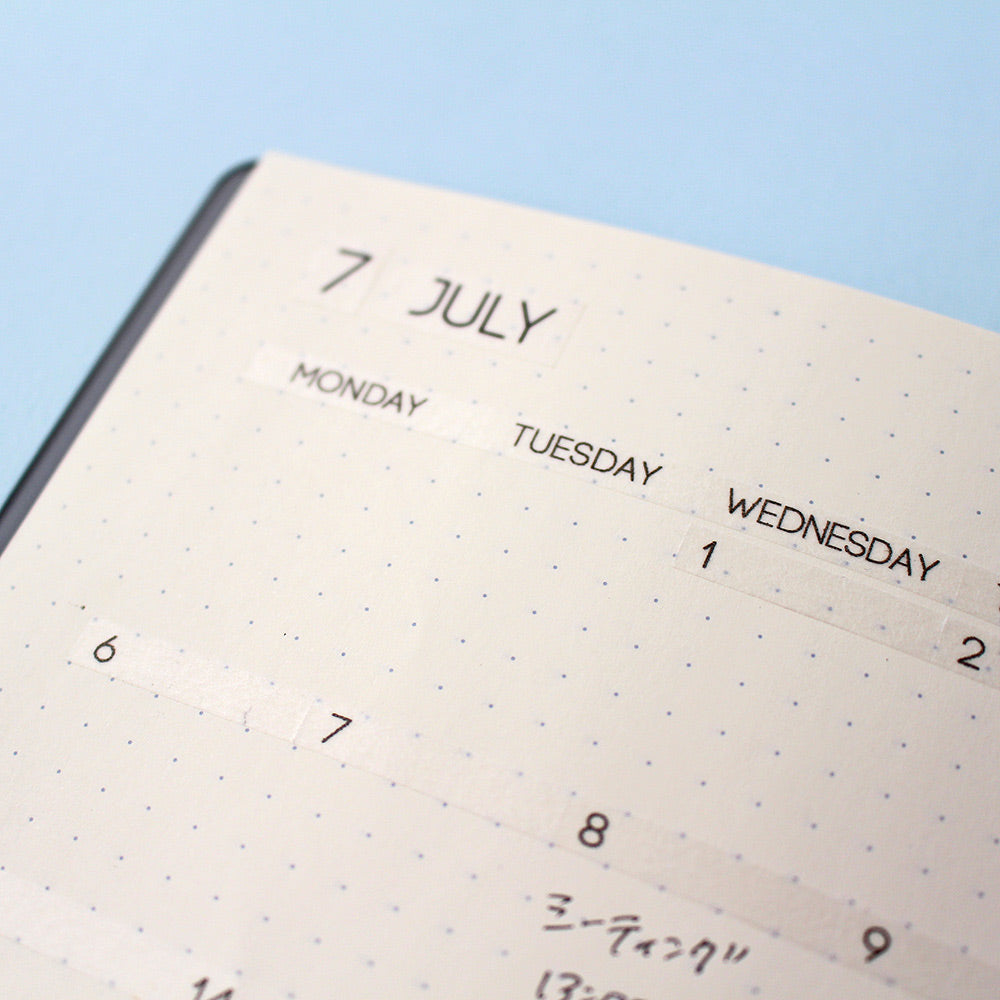 7 JULY
MONDAY TUESDAY WEDNESDAY
1 2
6 7 8 9
ミーティング
14